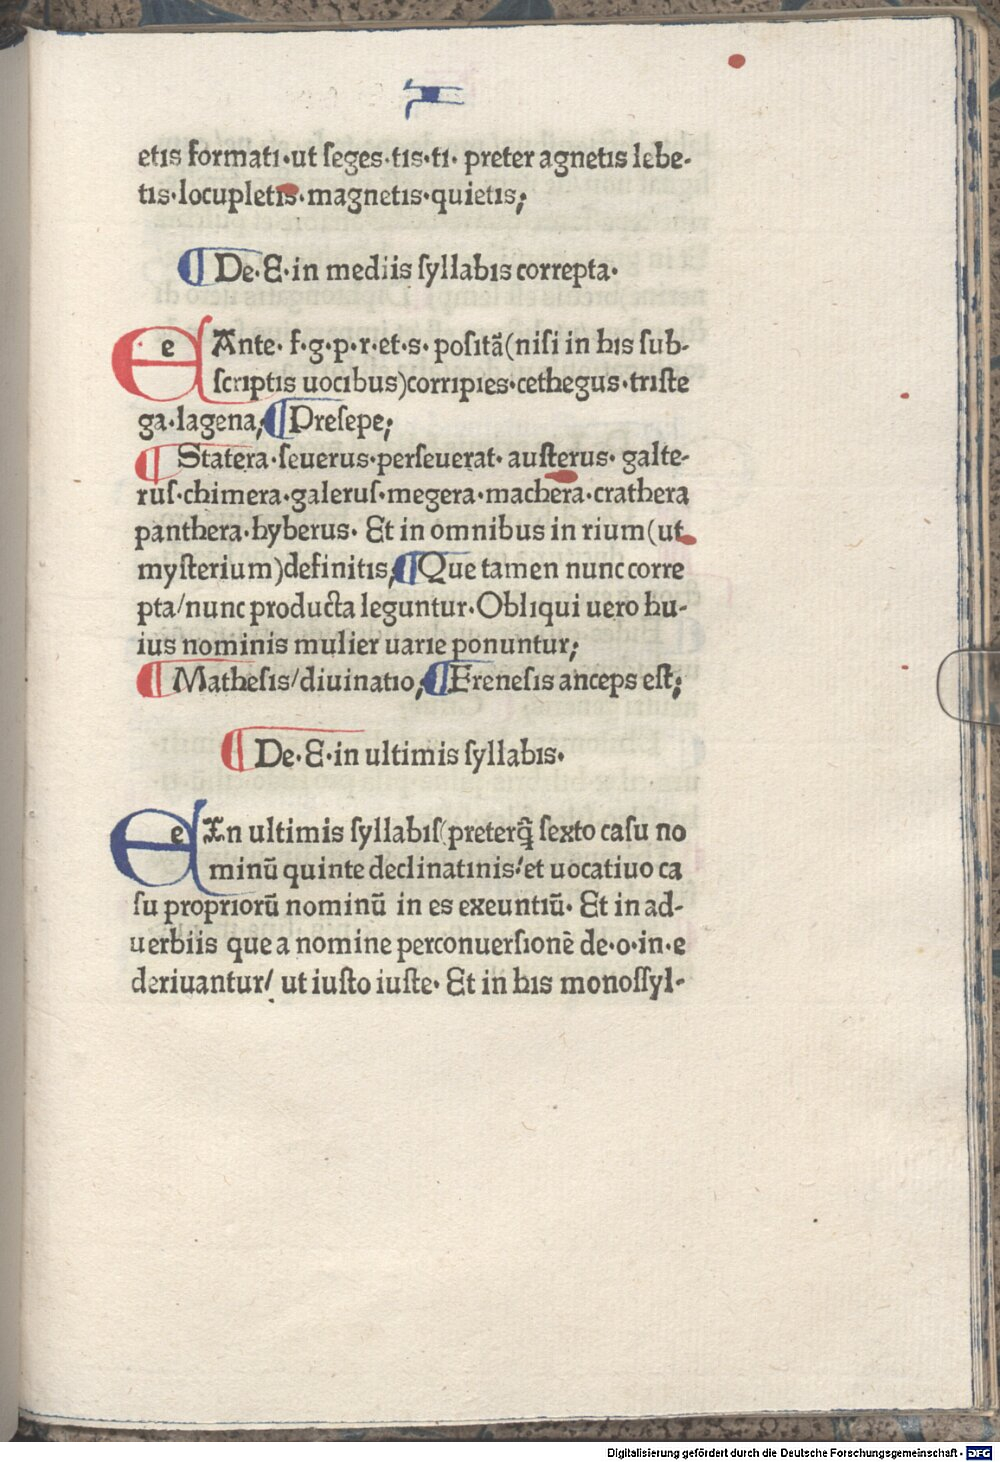 etis formati·ut ſeges·tis·ti· preter agnetis lebe-
tis·locupletis·magnetis·quietis;
¶ De·E·in mediis ſyllabis correpta·
E e Ante· f·g·p·r·et·s· poſitã(niſi in his ſub-
ſcriptis uocibus)corripies·cethegus·triſte
ga·lagena;¶Preſepe;
¶ Statera·ſeuerus·perſeuerat· auſterus· galte-
ruſ·chimera·galeruſ·megera·machera·crathera
panthera·hyberus· Et in omnibus in rium(ut
myſterium)definitis;¶Que tamen nunc corre
pta/nunc producta leguntur·Obliqui uero hu-
ius nominis mulier uarie ponuntur;
¶ Matheſis/diuinatio;¶Freneſis anceps eſt;
¶ De·E·in ultimis ſyllabis·
E e In ultimis ſyllabiſ(preterq̃ ſexto caſu no
minũ quinte declinatinis/et uocatiuo ca
ſu propriorũ nominũ in es exeuntiũ· Et in ad-
uerbiis que a nomine perconuerſionē de·o·in·e
deriuantur/ ut iuſto iuſte· Et in his monoſſyl-
Digitalisierung gefördert durch die Deutsche Forschungsgemeinschaft - DFG